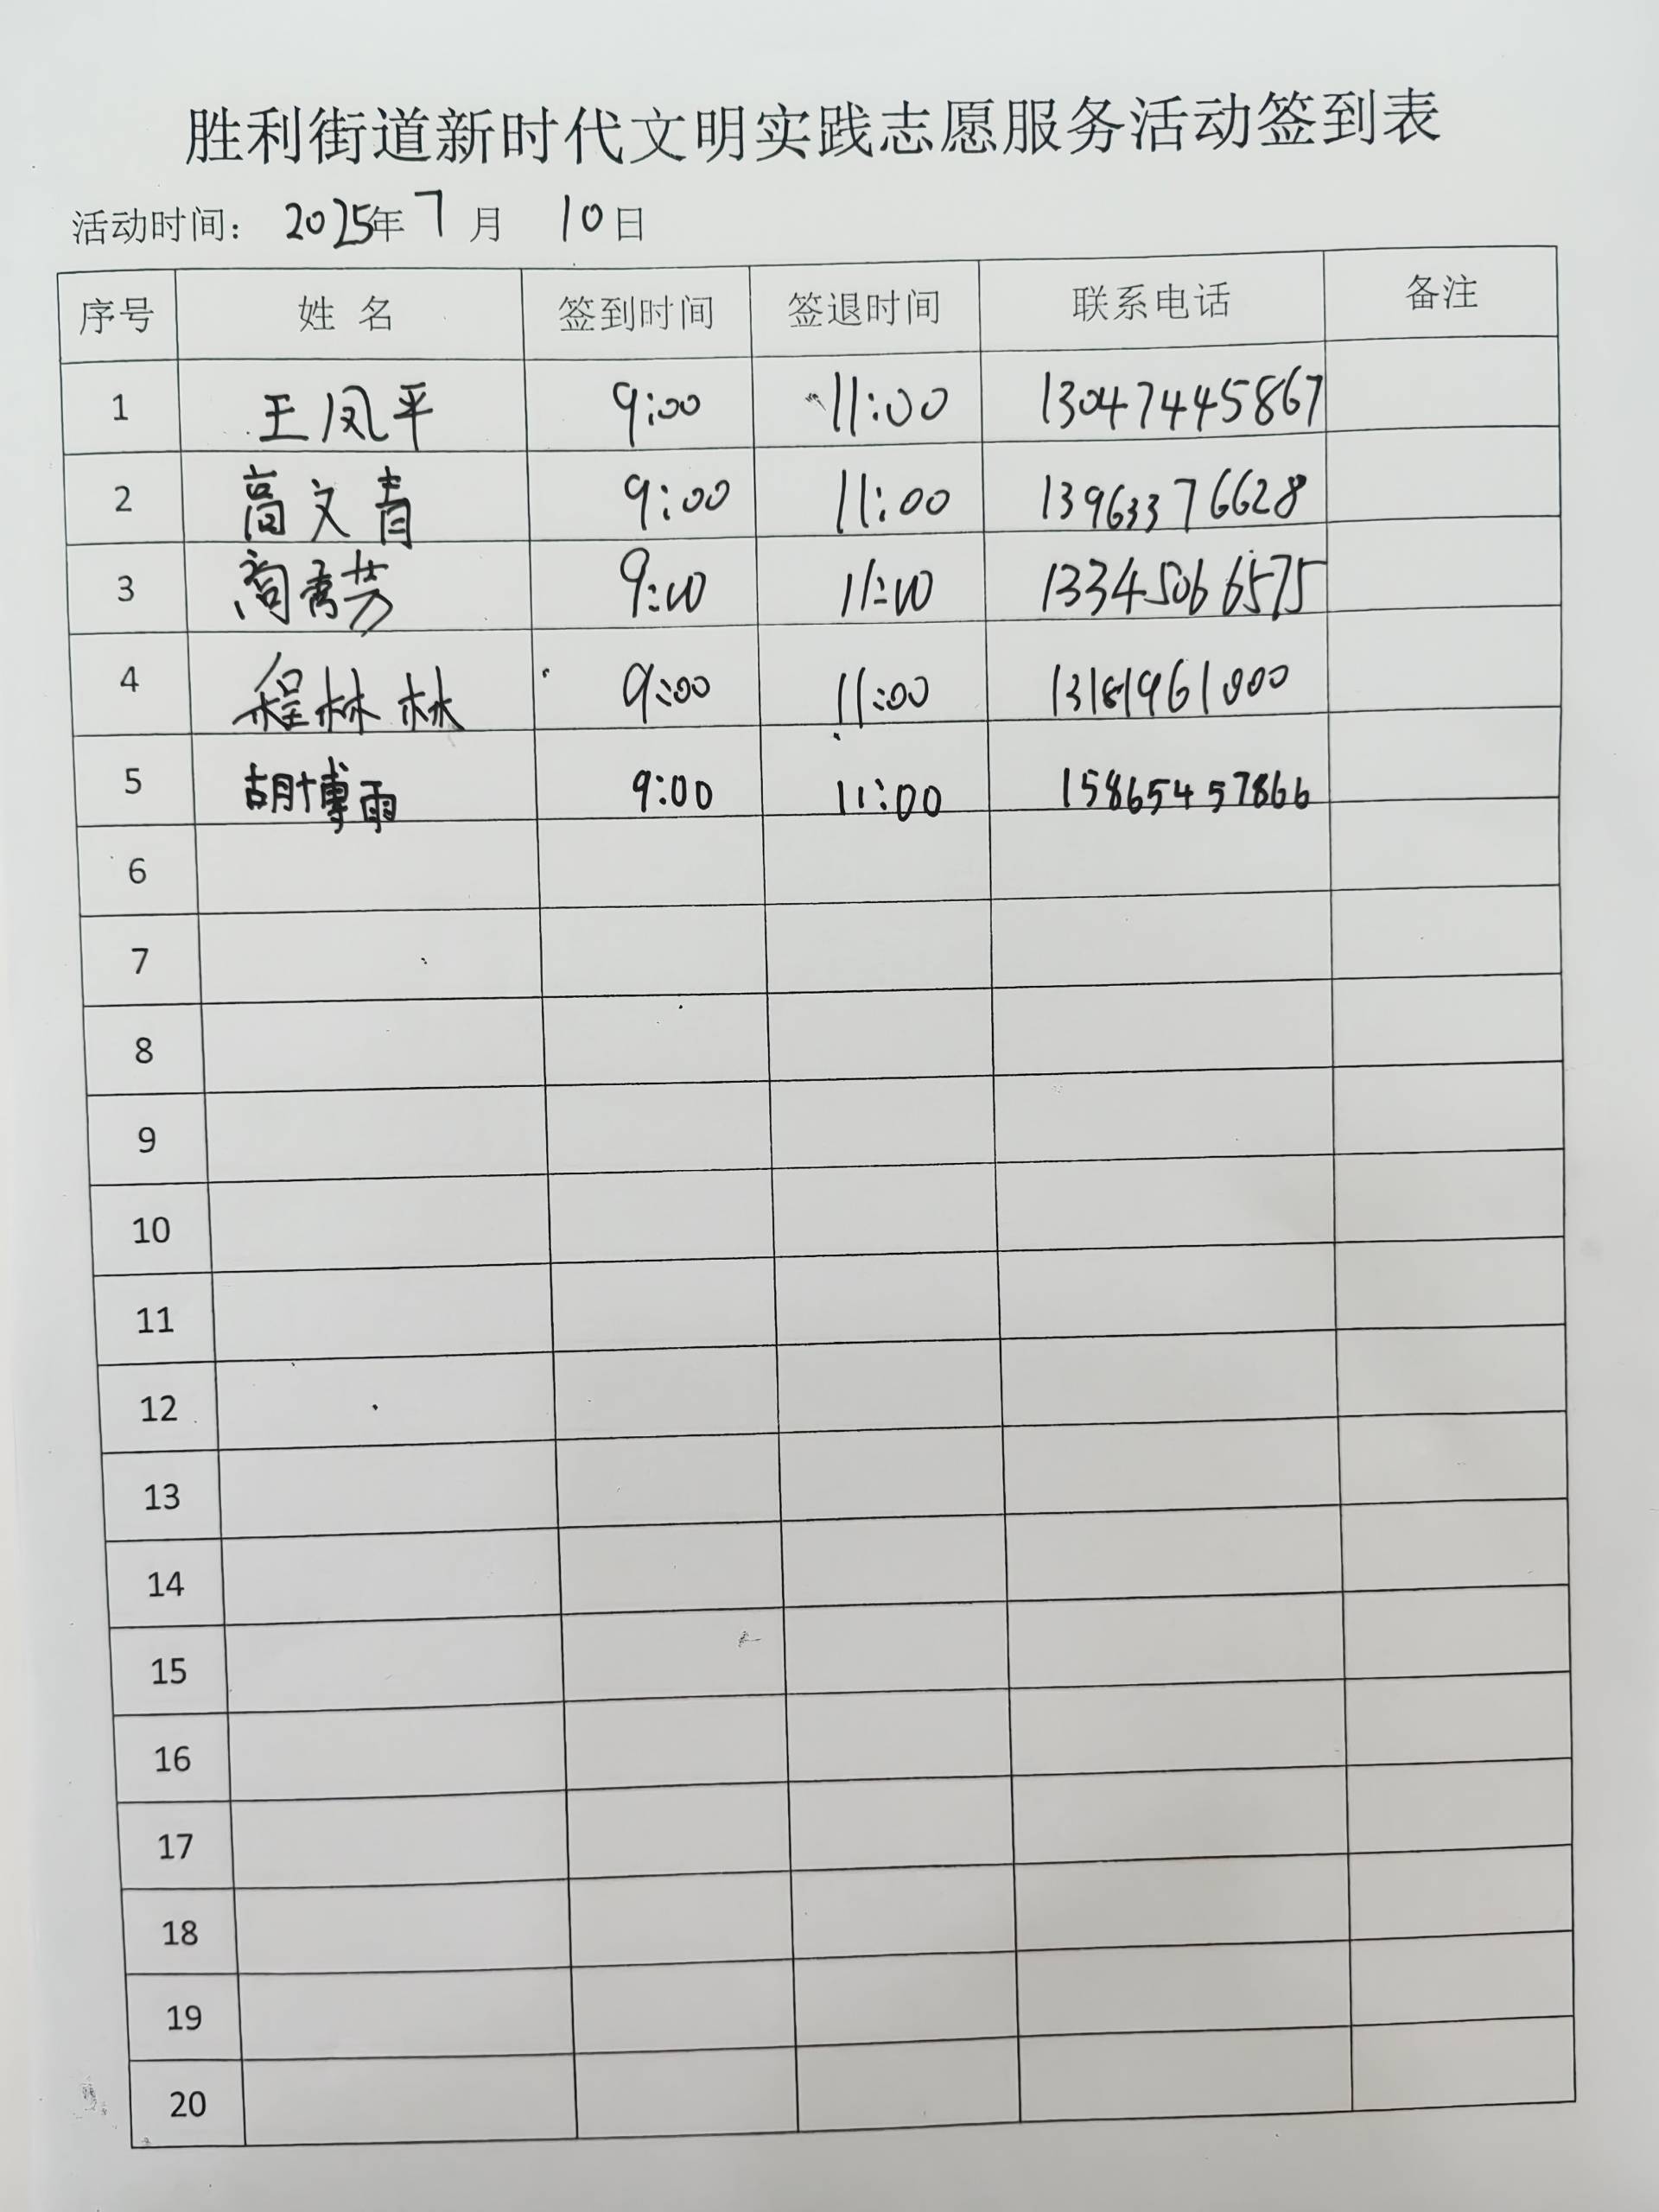 胜利街道新时代文明实践志愿服务活动签到表
活动时间： 2025年 7 月 10日
序号 姓 名 签到时间 签退时间 联系电话 备注
1 王凤平 9:00 11:00 13047445867
2 高文青 9:00 11:00 13963376628
3 秀芳 9:00 11:00 13345066575
4 程林林 9:00 11:00 13181961000
5 胡博雨 9:00 11:00 15865457866
6
7
8
9
10
11
12
13
14
15
16
17
18
19
20